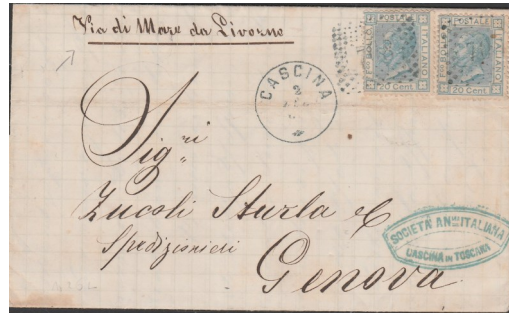 Via di Mare da Livorno
POSTALE
ITALIANO
20 Cent
POSTALE
ITALIANO
20 Cent
CASCINA
2
Sig.ri
Zucoli Sturla & C
Spedizionieri
Genova
SOCIETÀ AN ITALIANA
CASCINA IN TOSCANA